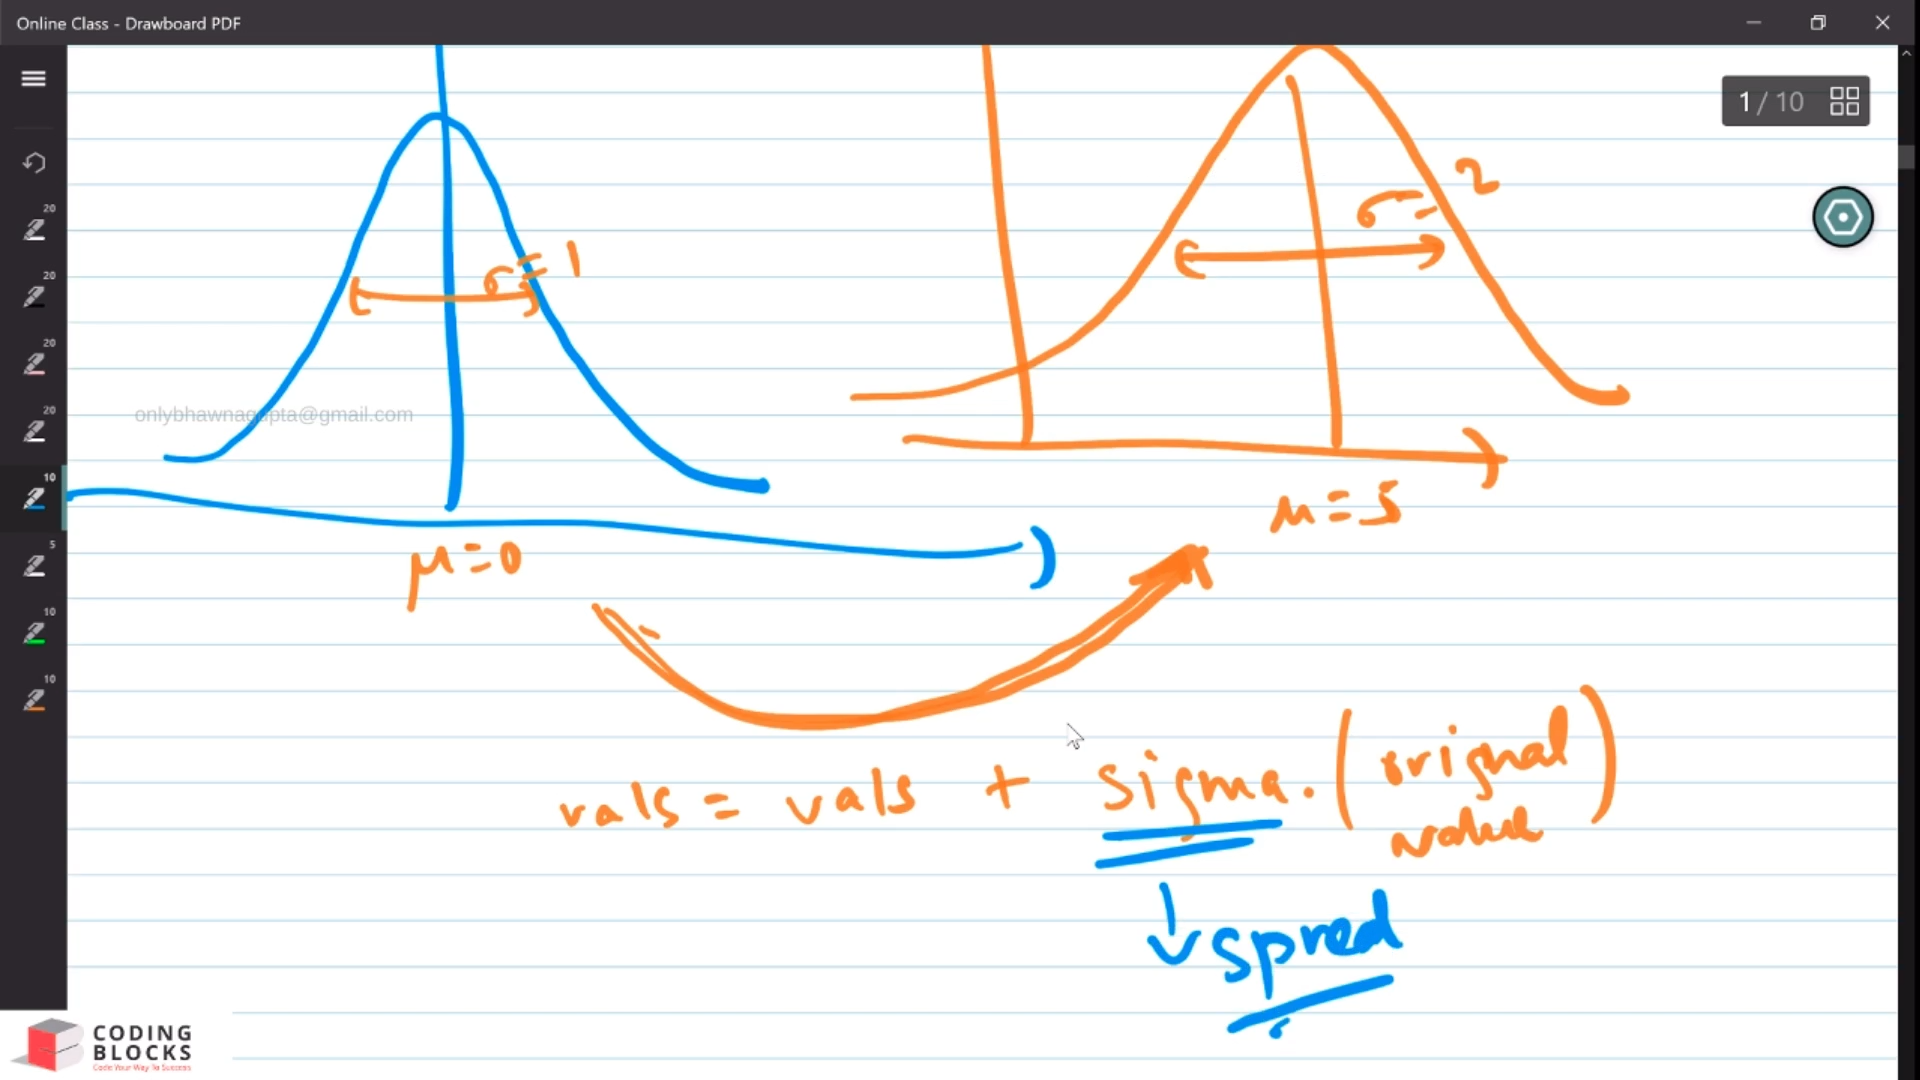 Online Class - Drawboard PDF
1 / 10
20
20
20
20
10
5
10
10
σ = 1
σ = 2
onlybhawnagupta@gmail.com
μ = 0
μ = 5
vals = vals + sigma . (orignal value)
spred
CODING
BLOCKS
Code Your Way To Success